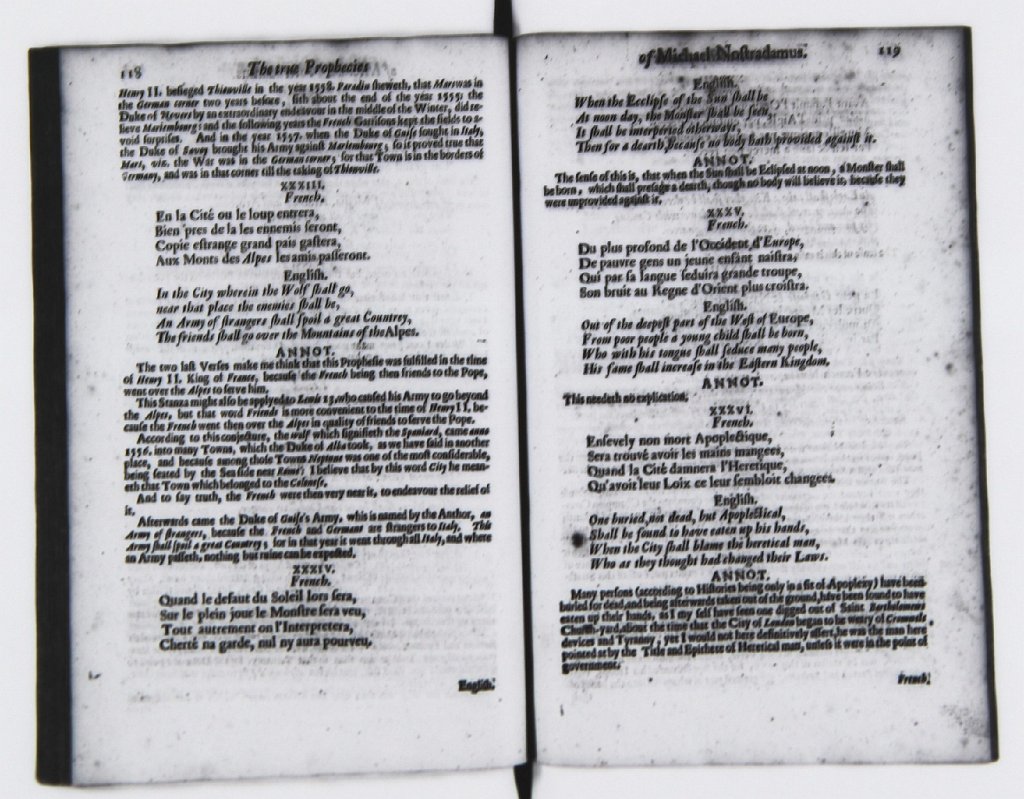 118 The true Prophecies
Henry II. besieged Thionville in the year 1558. Paradin sheweth, that Mars was in
the German corner two years before, sith about the end of the year 1555; the
Duke of Nevers by an extraordinary endeavour in the middle of the Winter, did re-
lieve Mariembourg; and the following years the French Garrisons kept the fields to a-
void surprises. And in the year 1557. when the Duke of Guise fought in Italy,
the Duke of Savoy brought his Army against Mariembourg; so it proved true that
Mars, viz. the War was in the German corner; for that Town is in the borders of
Germany, and was in that corner till the taking of Thionville.
XXXIII.
French.
En la Cité ou le loup entrera,
Bien pres de la les ennemis seront,
Copie estrange grand pais gastera,
Aux Monts des Alpes les amis passeront.
English.
In the City wherein the Wolf shall go,
near that place the enemies shall be,
An Army of strangers shall spoil a great Countrey,
The friends shall go over the Mountains of the Alpes.
ANNOT.
The two last Verses make me think that this Prophesie was fulfilled in the time
of Henry II. King of France, because the French being then friends to the Pope,
went over the Alpes to serve him.
This Stanza might also be applyed to Lewis 13, who caused his Army to go beyond
the Alpes, but that word Friends is more convenient to the time of Henry II, be-
cause the French went then over the Alpes in quality of friends to serve the Pope.
According to this conjecture, the wolf which signifieth the Spaniard, came anno
1556. into many Towns, which the Duke of Alba took, as we have said in another
place, and because among those Towns Neptune was one of the most considerable,
being seated by the Sea side near Rome; I believe that by this word City he mean-
eth that Town which belonged to the Colonese.
And to say truth, the French were then very near it, to endeavour the relief of
it.
Afterwards came the Duke of Guise's Army, whis is named by the Author, an
Army of strangers, because the French and Germans are strangers to Italy. This
Army shall spoil a great Countrey; for in that year it went through all Italy, and where
an Army passeth, nothing but ruine can be expected.
XXXIV.
French.
Quand le defaut du Soleil lors sera,
Sur le plein jour le Monstre sera veu,
Tout autrement on l'Interpretera,
Cherté na garde, nul ny aura pourveu.
English.
of Michael Nostradamus. 119
English.
When the Ecclipse of the Sun shall be
At noon day, the Monster shall be seen,
It shall be interpreted otherways,
Then for a dearth, because no body hath provided against it.
ANNOT.
The sense of this is, that when the Sun shall be Eclipsed at noon, a Monster shall
be born, which shall presage a dearth, though no body will believe it, because they
were unprovided against it.
XXXV.
French.
Du plus profond de l'Occident d'Europe,
De pauvre gens un jeune enfant naistra,
Qui par sa langue seduira grande troupe,
Son bruit au Regne d'Orient plus croistra.
English.
Out of the deepest part of the West of Europe,
From poor people a young child shall be born,
Who with his tongue shall seduce many people,
His fame shall increase in the Eastern Kingdom.
ANNOT.
This needeth no explication.
XXXVI.
French.
Ensevely non mort Apoplectique,
Sera trouvé avoir les mains mangees,
Quand la Cité damnera l'Heretique,
Qu'avoit leur Loix ce leur sembloit changees.
English.
One buried, not dead, but Apoplectical,
Shall be found to have eaten up his hands,
When the City shall blame the heretical man,
Who as they thought had changed their Laws.
ANNOT.
Many persons (according to Histories being only in a fit of Apoplexy) have been
buried for dead, and being afterwards taken out of the ground, have been found to have
eaten up their hands, as I my self have seen one digged out of Saint Bartholomews
Church-yard, about the time that the City of London began to be weary of Cromwells
devices and Tyranny, yet I would not here definitively assert, he was the man here
pointed at by the Title and Epithete of Heretical man, unless it were in the point of
government.
French.